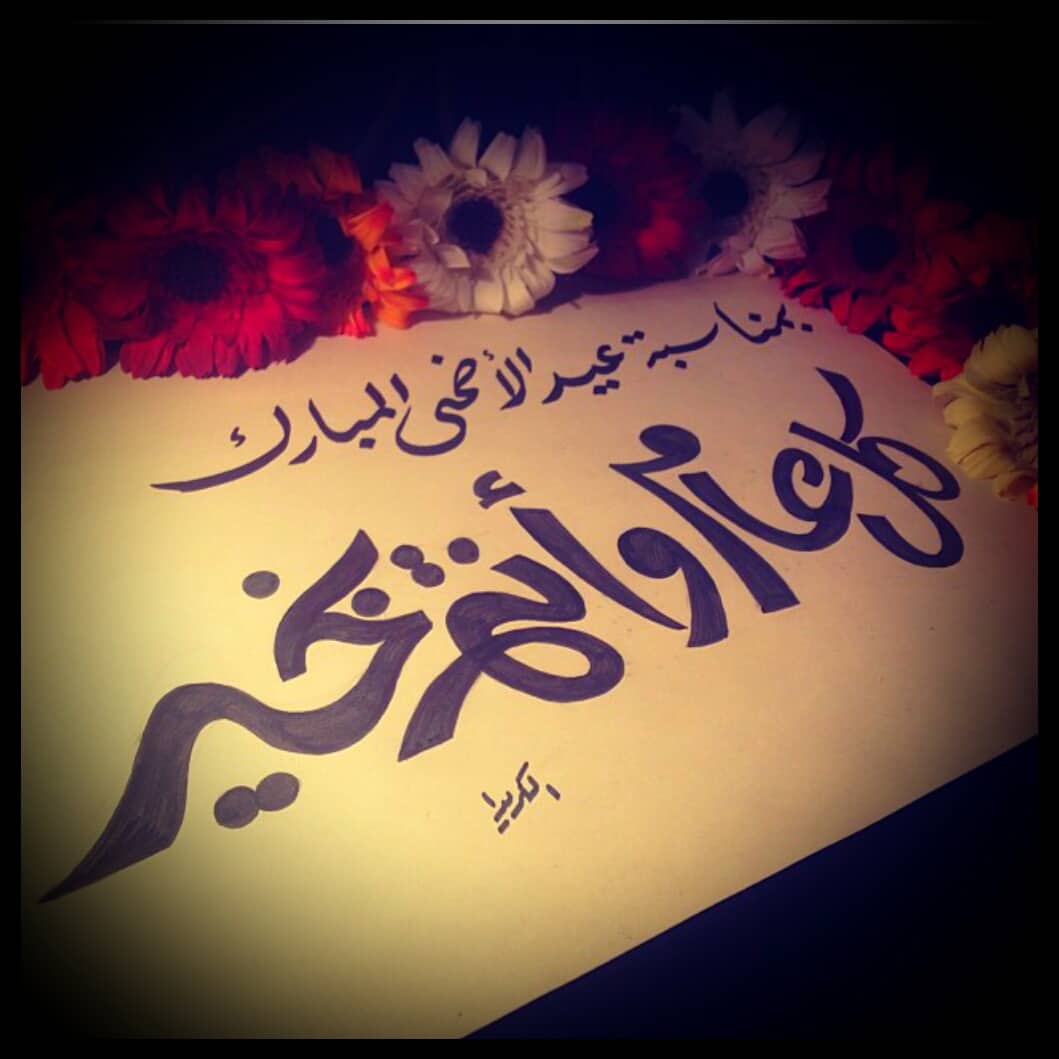 بمناسبة عيد الأضحى المبارك
كل عام وأنتم بخير